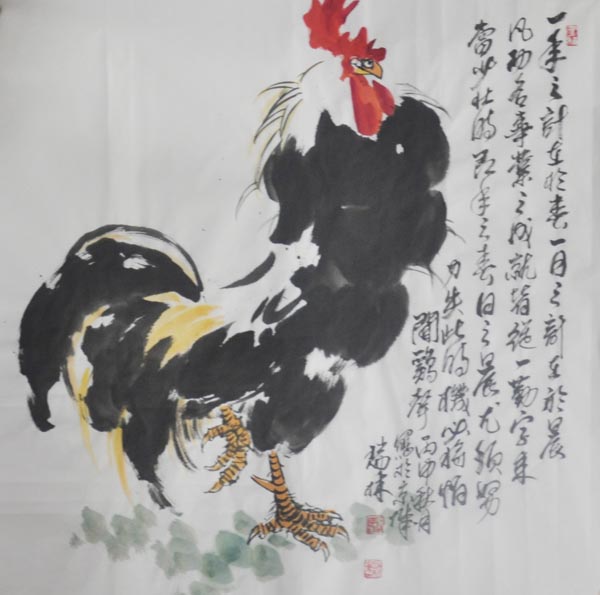 一年之計在於春一日之計在於晨
凡功名事業之成就皆從一勤字來
當少壯時即年之春日之晨尤須努
力失此時機必將怕
聞鷄聲
丙申秋月
寫於京華
瑞林